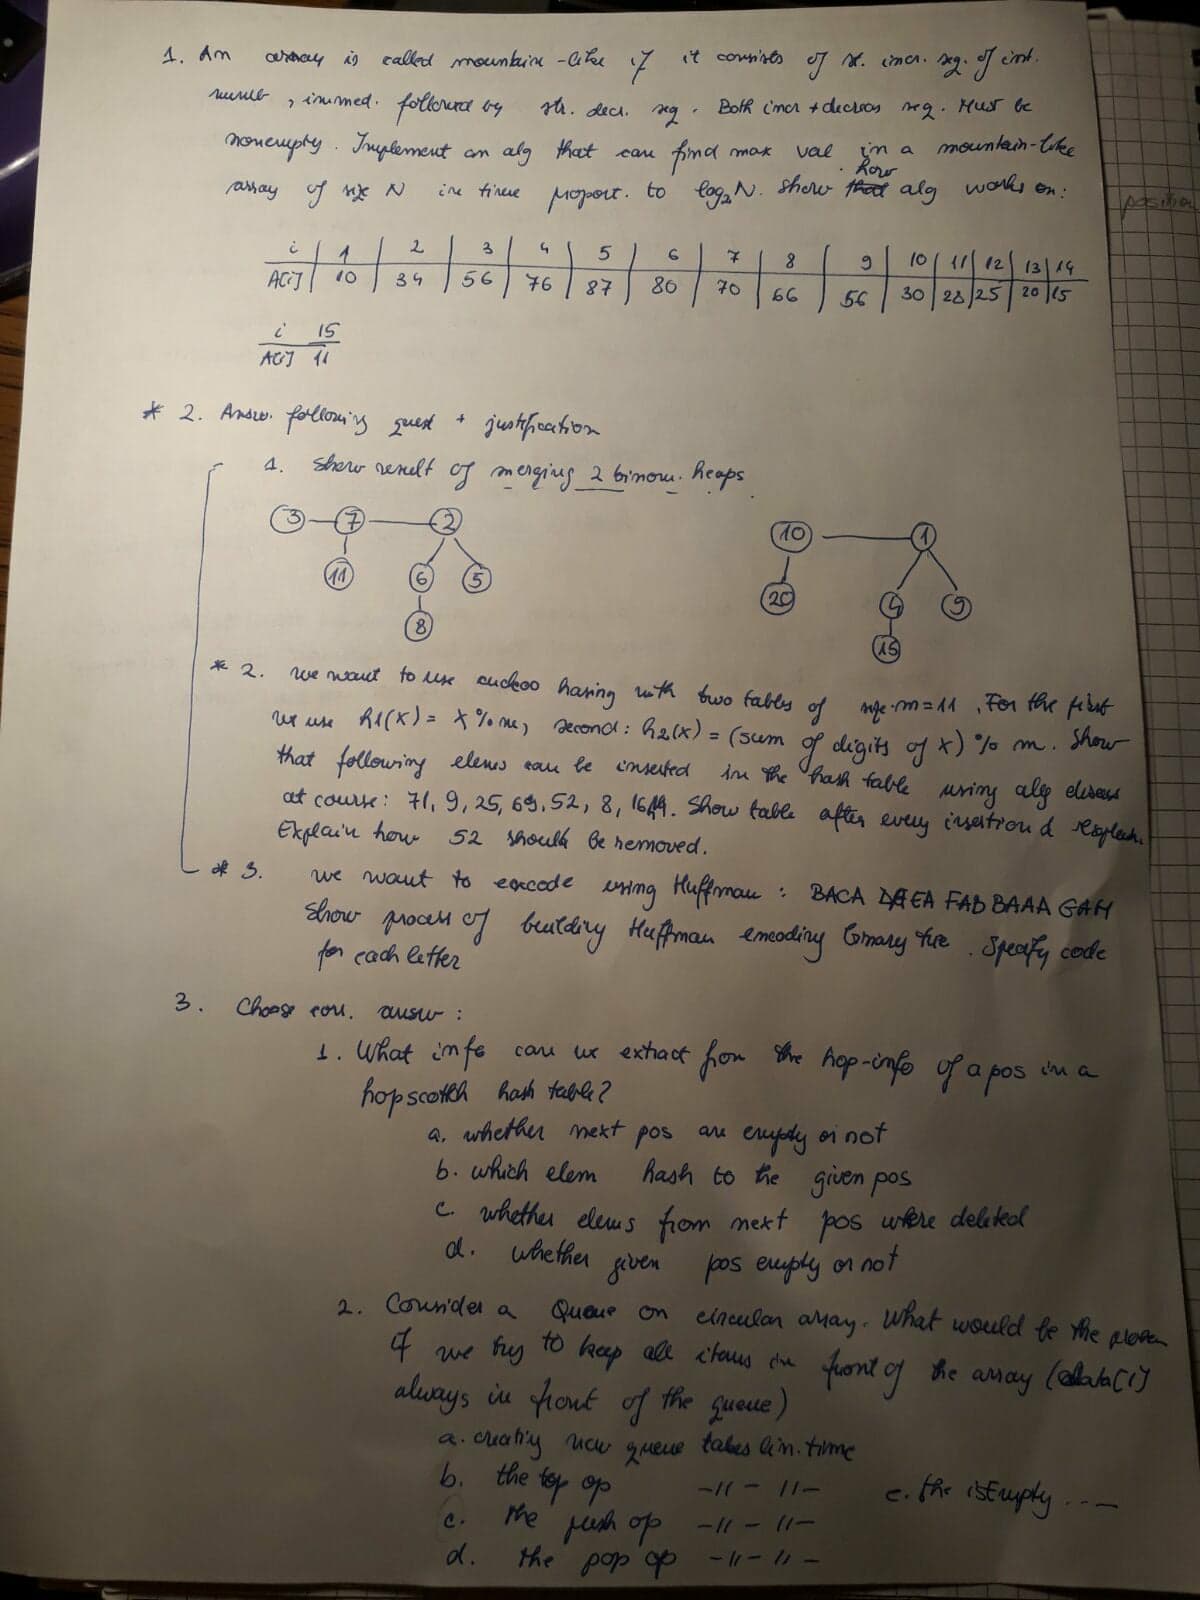 1. An array is called mountain-like if it consists of st. incr. seq. of int.
numb, immed. followed by str. decr. seq. Both incr + decreas seq. Must be
nonempty. Implement an alg that can find max val in a mountain-like
array of size N in time proport. to log2N. Show how alg works on:
position
i 1 2 3 4 5 6 7 8 9 10 11 12 13 14
A[i] 10 34 56 76 87 80 70 66 56 30 28 25 20 15
i 15
A[i] 11
* 2. Answ. following quest + justification
1. Show result of merging 2 binom. heaps
3 7 2 10 1
11 6 5 20 4 9
8 15
* 2. we want to use cuckoo hasing with two tables of size m=11, For the first
we use h1(x) = x % m, second: h2(x) = (sum of digits of x) % m. Show
that following elems can be inserted in the hash table using alg discuss
at course: 71, 9, 25, 69, 52, 8, Show table after every insertion &
Explain how 52 should be removed.
* 3. we want to encode using Huffman: BACA FAB BAAA GAH
Show process of building Huffman encoding binary tree. Specify code
for each letter
3. Choose corr. answ:
1. What info can we extract from the hop-info of a pos in a
hopscotch hash table?
a. whether next pos are empty or not
b. which elem hash to the given pos
c. whether elems from next pos where deleted
d. whether given pos empty or not
2. Consider a Queue on circular array. What would be the
if we try to keep all items in front of the array (data[1]
always in front of the queue)
a. creating new queue takes lin. time
b. the top op -11- 11- e. the isEmpty ...-
c. the push op -11- 11-
d. the pop op -11- 11-